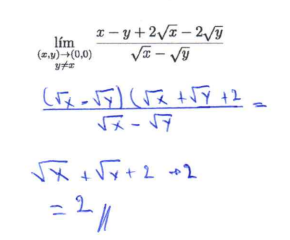 lím (x,y)→(0,0) y≠x x − y + 2√x − 2√y / √x − √y
(√x - √y) (√x + √y + 2 / √x - √y =
√x + √y + 2 → 2
= 2 //